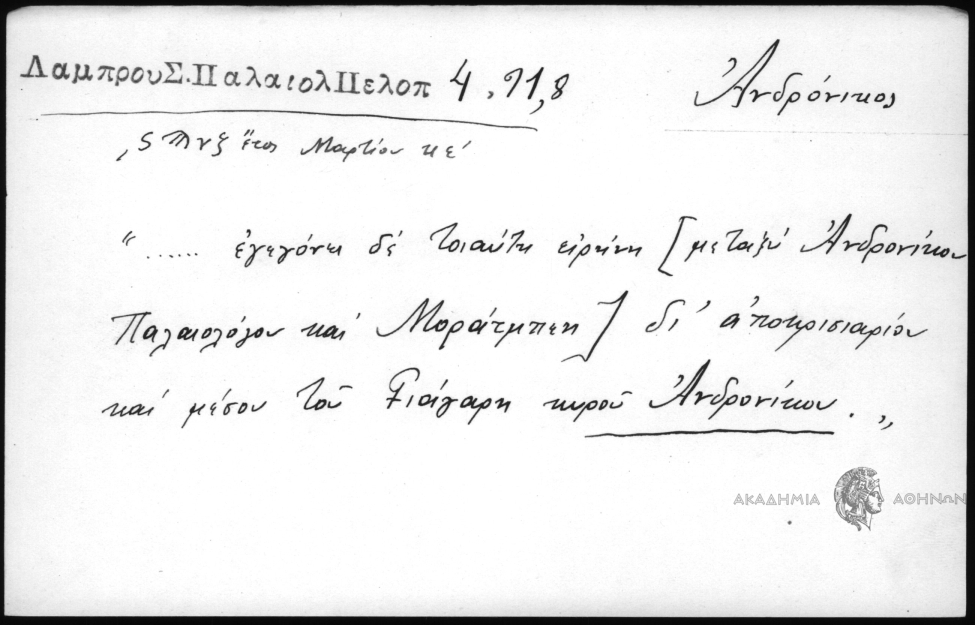 ΛαμπρουΣ.ΠαλαιολΠελοπ 4, 11,8 Ἀνδρόνικος
͵ςϠνξ ἔτος Μαρτίου κε'
“ ...... ἐγεγόνει δέ τοιαύτη εἰρήνη [μεταξύ Ἀνδρονίκου
Παλαιολόγου καί Μοράτμπεη] δι' ἀποκρισιαρίου
καί μέσου τοῦ Γιάγαρη κυροῦ Ἀνδρονίκου. „
ΑΚΑΔΗΜΙΑ ΑΘΗΝΩΝ